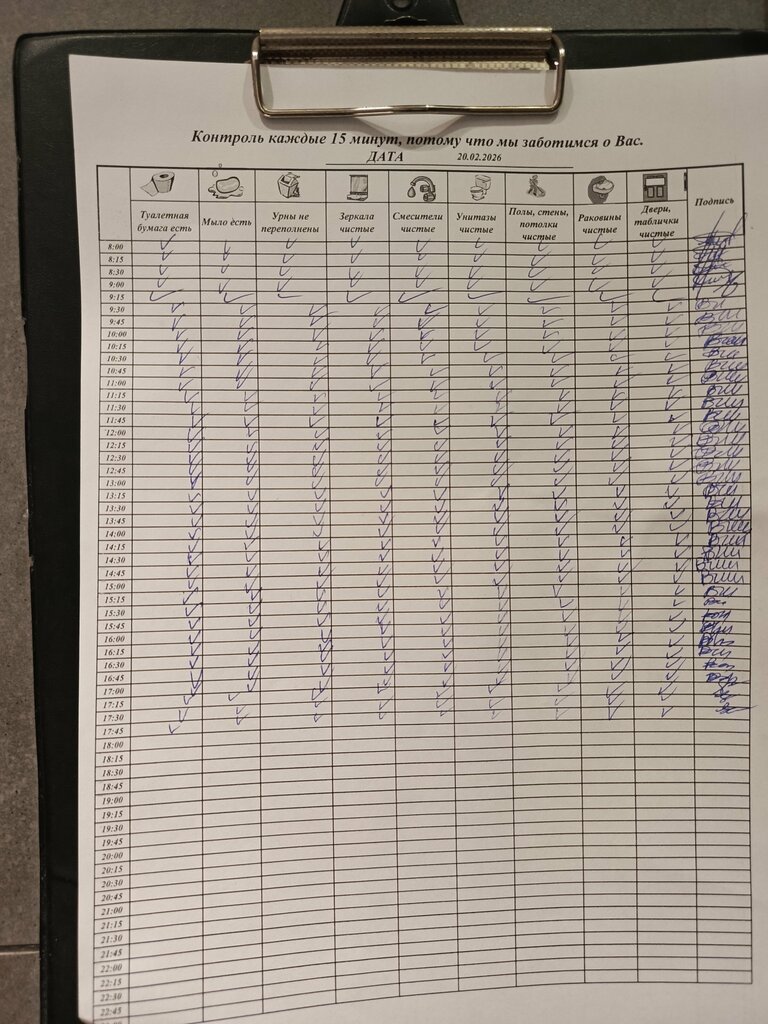 Контроль каждые 15 минут, потому что мы заботимся о Вас.
ДАТА 20.02.2026
Туалетная бумага есть
Мыло есть
Урны не переполнены
Зеркала чистые
Смесители чистые
Унитазы чистые
Полы, стены, потолки чистые
Раковины чистые
Двери, таблички чистые
Подпись
8:00
8:15
8:30
9:00
9:15
9:30
9:45
10:00
10:15
10:30
10:45
11:00
11:15
11:30
11:45
12:00
12:15
12:30
12:45
13:00
13:15
13:30
13:45
14:00
14:15
14:30
14:45
15:00
15:15
15:30
15:45
16:00
16:15
16:30
16:45
17:00
17:15
17:30
17:45
18:00
18:15
18:30
18:45
19:00
19:15
19:30
19:45
20:00
20:15
20:30
20:45
21:00
21:15
21:30
21:45
22:00
22:15
22:30
22:45